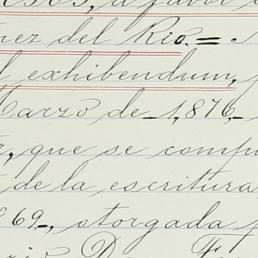 a favor
nez del Rio.=
exhibendum,
Marzo de 1,876,
que se comp
de la escritura
69, otorgada p